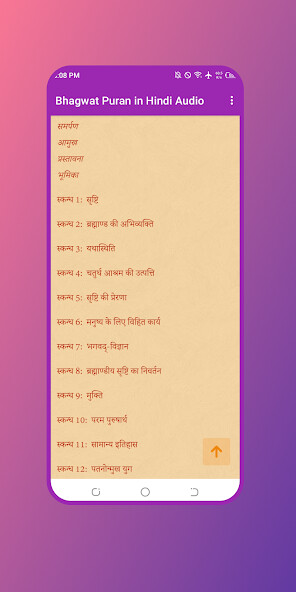 :08 PM
Bhagwat Puran in Hindi Audio
समर्पण
आमुख
प्रस्तावना
भूमिका
स्कन्ध 1: सृष्टि
स्कन्ध 2: ब्रह्माण्ड की अभिव्यक्ति
स्कन्ध 3: यथास्थिति
स्कन्ध 4: चतुर्थ आश्रम की उत्पत्ति
स्कन्ध 5: सृष्टि की प्रेरणा
स्कन्ध 6: मनुष्य के लिए विहित कार्य
स्कन्ध 7: भगवद्-विज्ञान
स्कन्ध 8: ब्रह्माण्डीय सृष्टि का निवर्तन
स्कन्ध 9: मुक्ति
स्कन्ध 10: परम पुरुषार्थ
स्कन्ध 11: सामान्य इतिहास
स्कन्ध 12: पतनोन्मुख युग